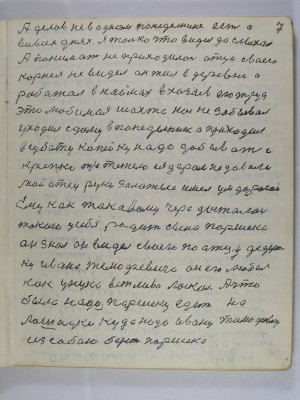 7
А делов не в одном понедельнике есть а
в иных днях. я только что видел да слыхал
А понимат не приходилось отца своего
корня не видел он жил в деревни а
работал в наймах в хозяев его труд
это любимая шахта но не забывал
уходил с дому в понедельник а приходил
в субботу копейку надо добыват и
крепко
мой отец руки золотые имел ум дорогой
Ему как такому
такого у себя родит сына паршика
он знал он видел своего по отцу дедуш-
ку ивана тимофеевича он его любил
как унука ветливо ласкал. А что
было надо паршику едет на
лошадки куда надо ивану тимофеевичу
из собою берет паршика